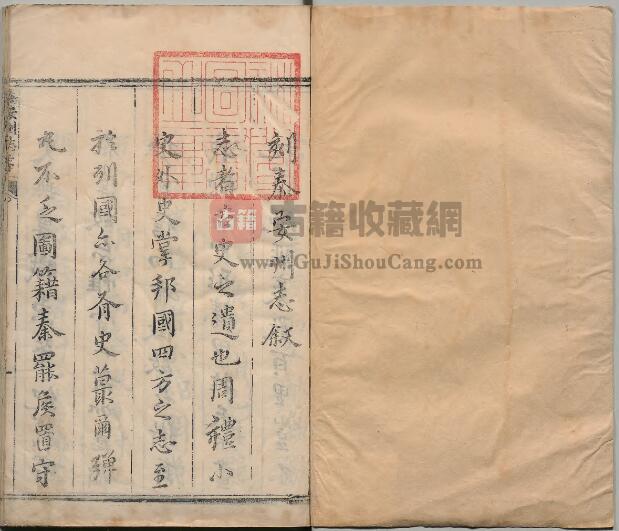 刻泰安州志叙
志者史之遺也周禮小
史外史掌邦國四方之志至
於列國亦各有史蕞爾彈
丸不乏圖籍秦罷侯置守
古籍
古籍收藏網
www.GuJiShouCang.com